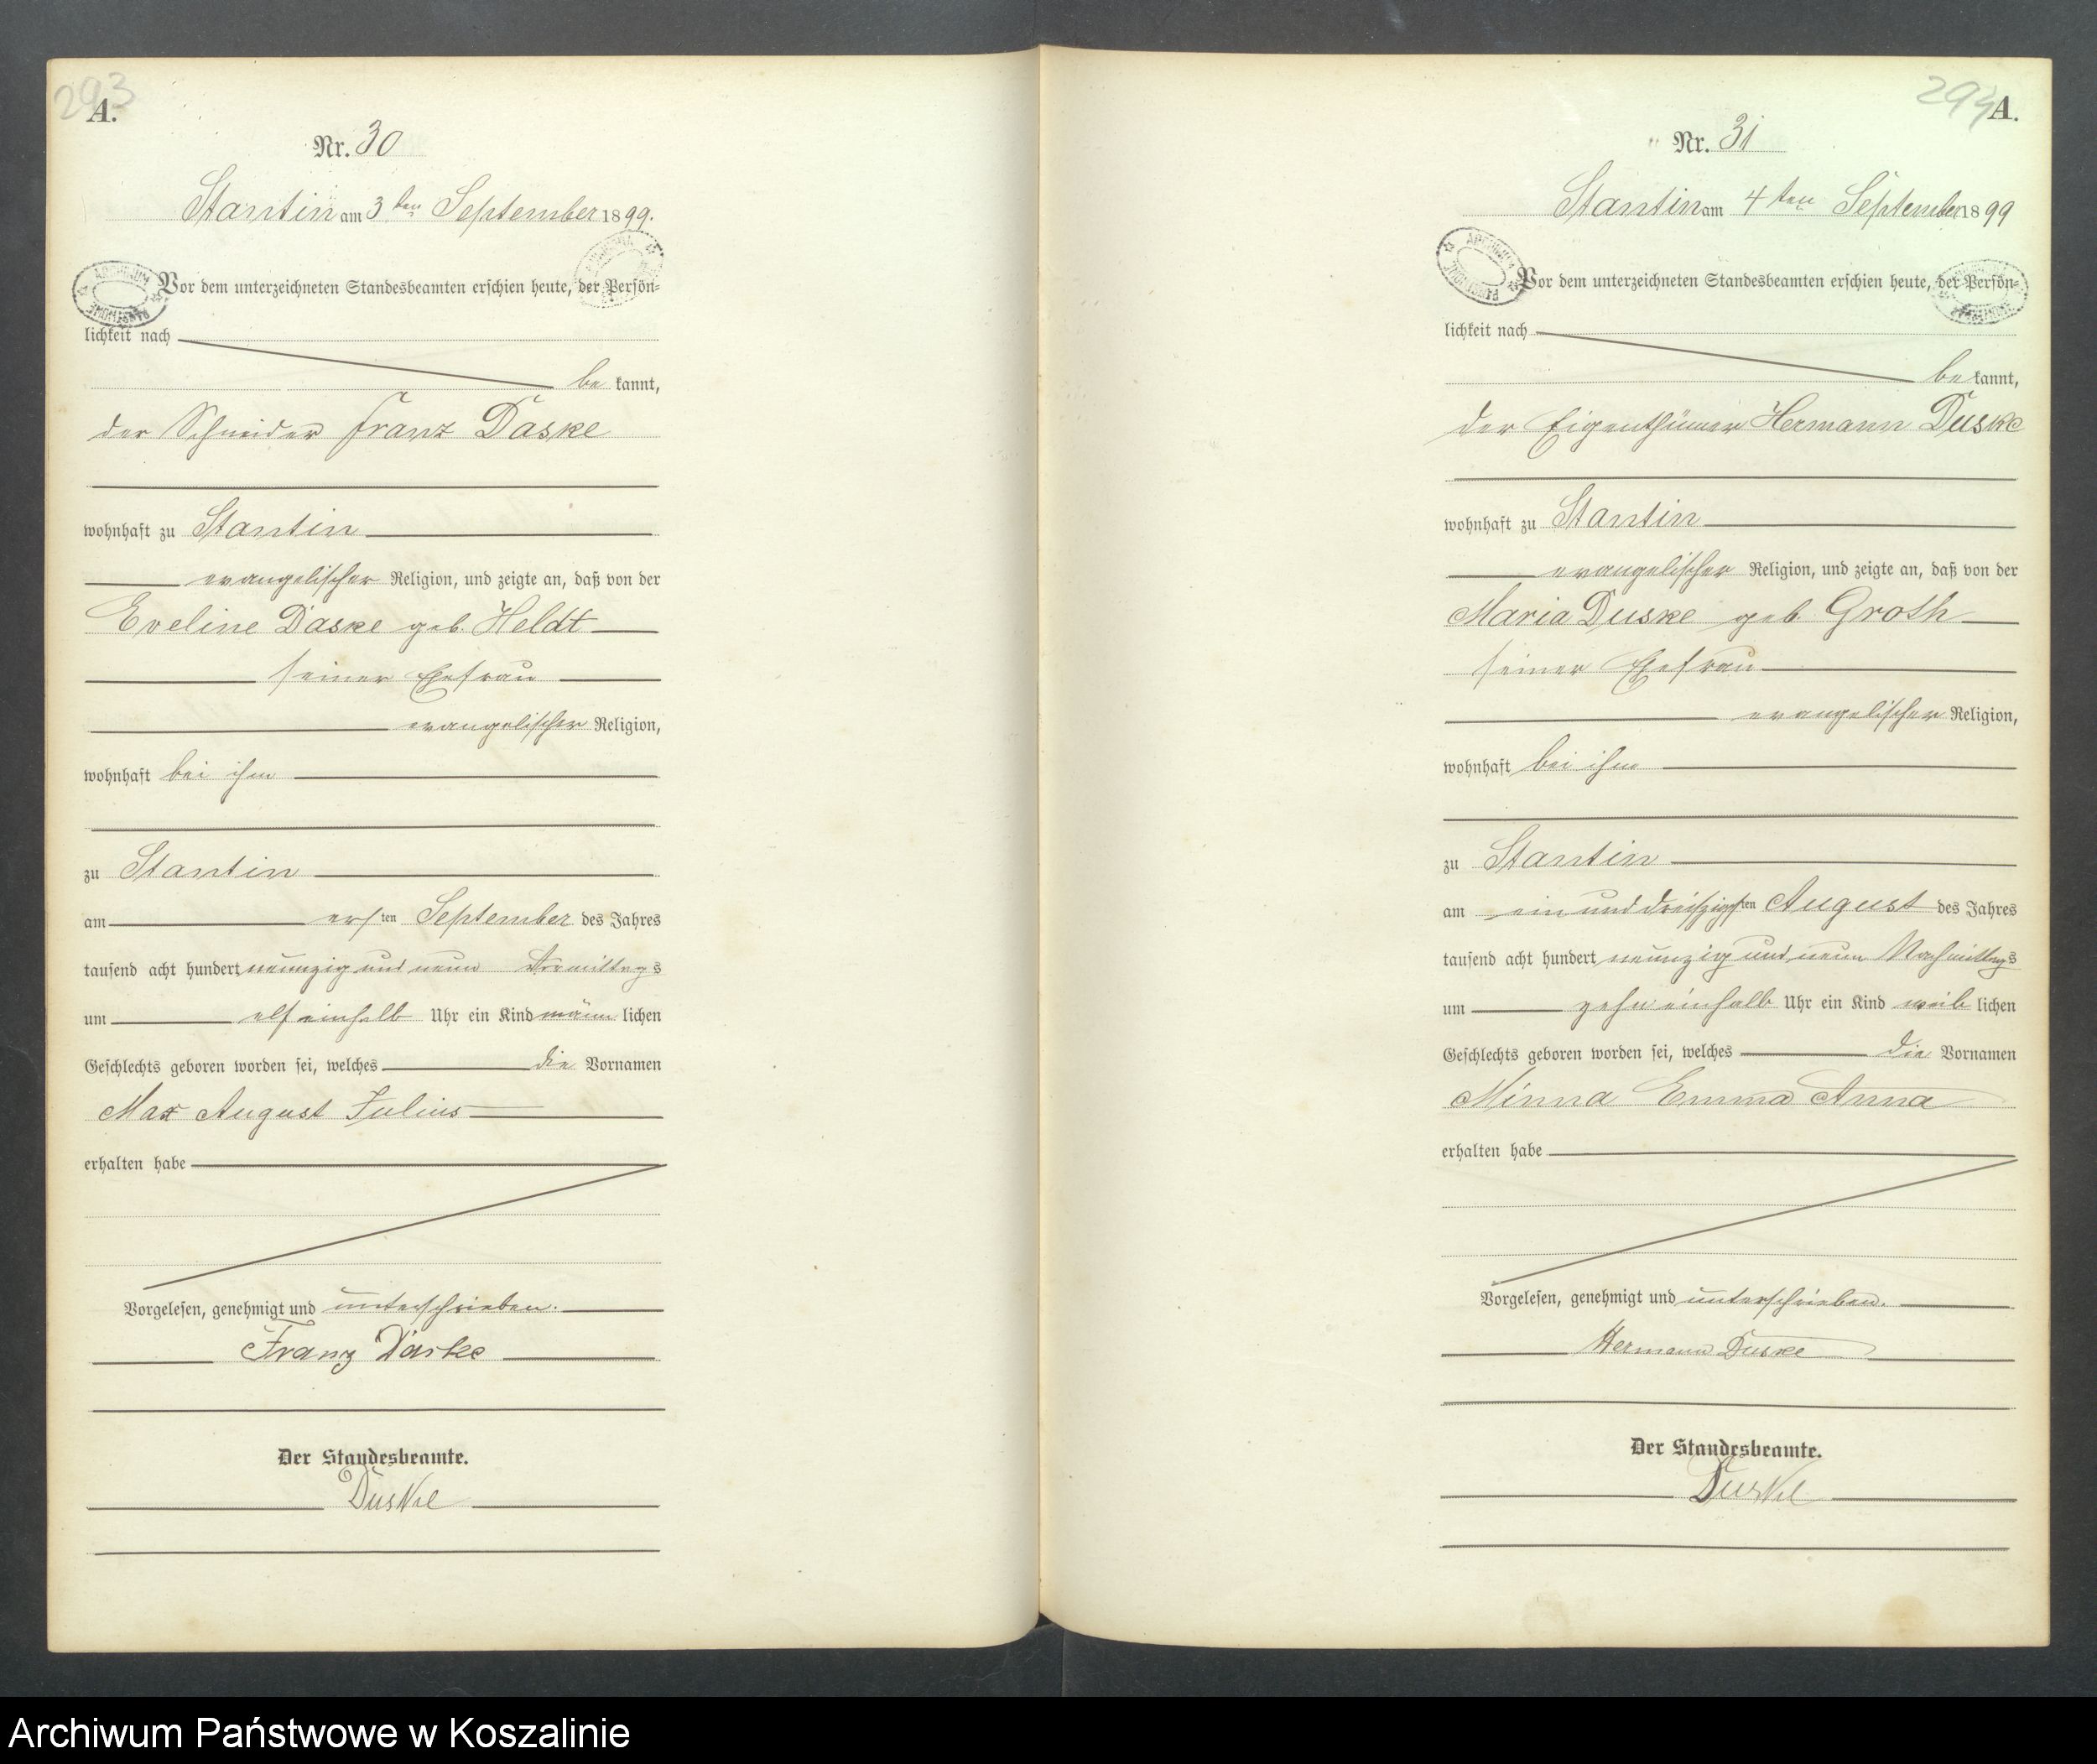 293
A.
Nr. 30
Stantin am 3ten September 1899.
Vor dem unterzeichneten Standesbeamten erschien heute, der Persön-
lichkeit nach
be kannt,
der Schneider Franz Daske
wohnhaft zu Stantin
evangelischer Religion, und zeigte an, daß von der
Eveline Daske geb. Heldt
seiner Ehefrau
evangelischer Religion,
wohnhaft bei ihm
zu Stantin
am ersten September des Jahres
tausend acht hundert neunzig und neun Vormittags
um elf einhalb Uhr ein Kind männlichen
Geschlechts geboren worden sei, welches die Vornamen
Max August Julius
erhalten habe
Vorgelesen, genehmigt und unterschrieben.
Franz Daske
Der Standesbeamte.
Duske
294
A.
Nr. 31
Stantin am 4ten September 1899
Vor dem unterzeichneten Standesbeamten erschien heute, der Persön-
lichkeit nach
be kannt,
der Eigenthümer Hermann Duske
wohnhaft zu Stantin
evangelischer Religion, und zeigte an, daß von der
Maria Duske geb. Groth
seiner Ehefrau
evangelischer Religion,
wohnhaft bei ihm
zu Stantin
am ein und dreißigsten August des Jahres
tausend acht hundert neunzig und neun Nachmittags
um zehn einhalb Uhr ein Kind weiblichen
Geschlechts geboren worden sei, welches die Vornamen
Minna Emma Anna
erhalten habe
Vorgelesen, genehmigt und unterschrieben.
Hermann Duske
Der Standesbeamte.
Duske
Archiwum Państwowe w Koszalinie